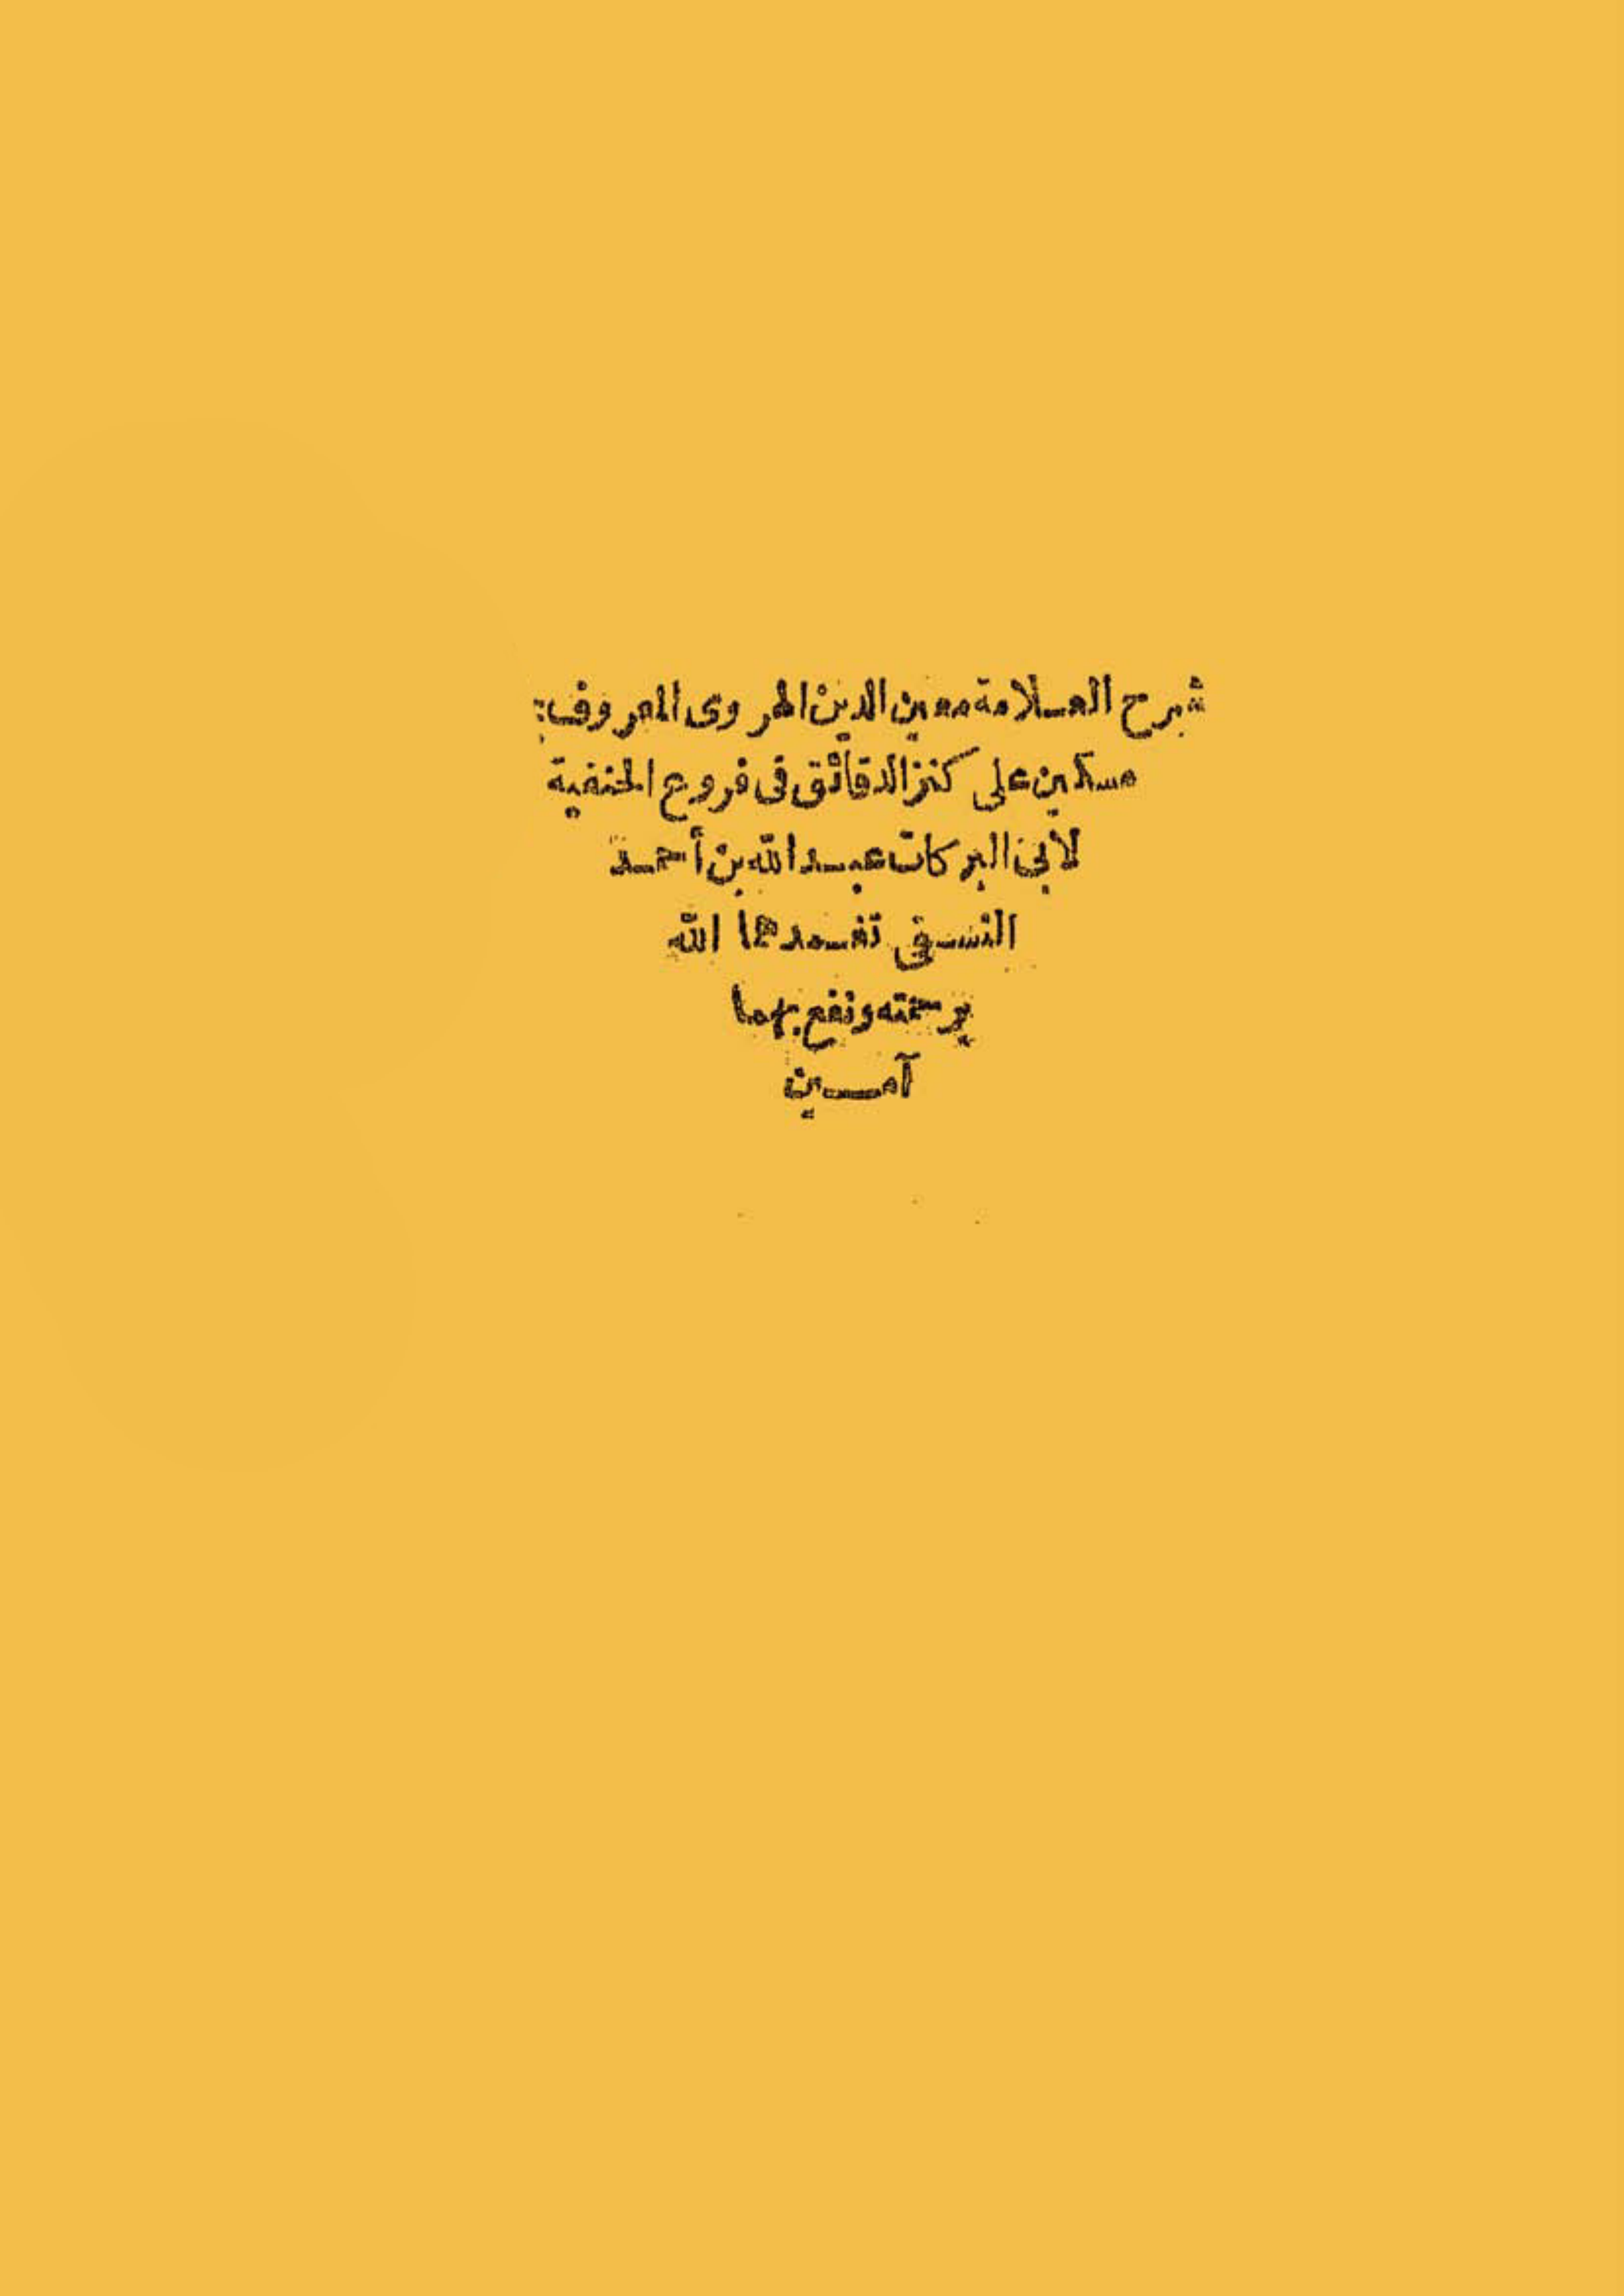 شرح العلامة معين الدين الهروى المعروف:
مسكين على كنز الدقائق فى فروع الحنفية
لأبى البركات عبد الله بن أحمد
النسفى تغمدهما الله
برحمته ونفع بهما
آمين